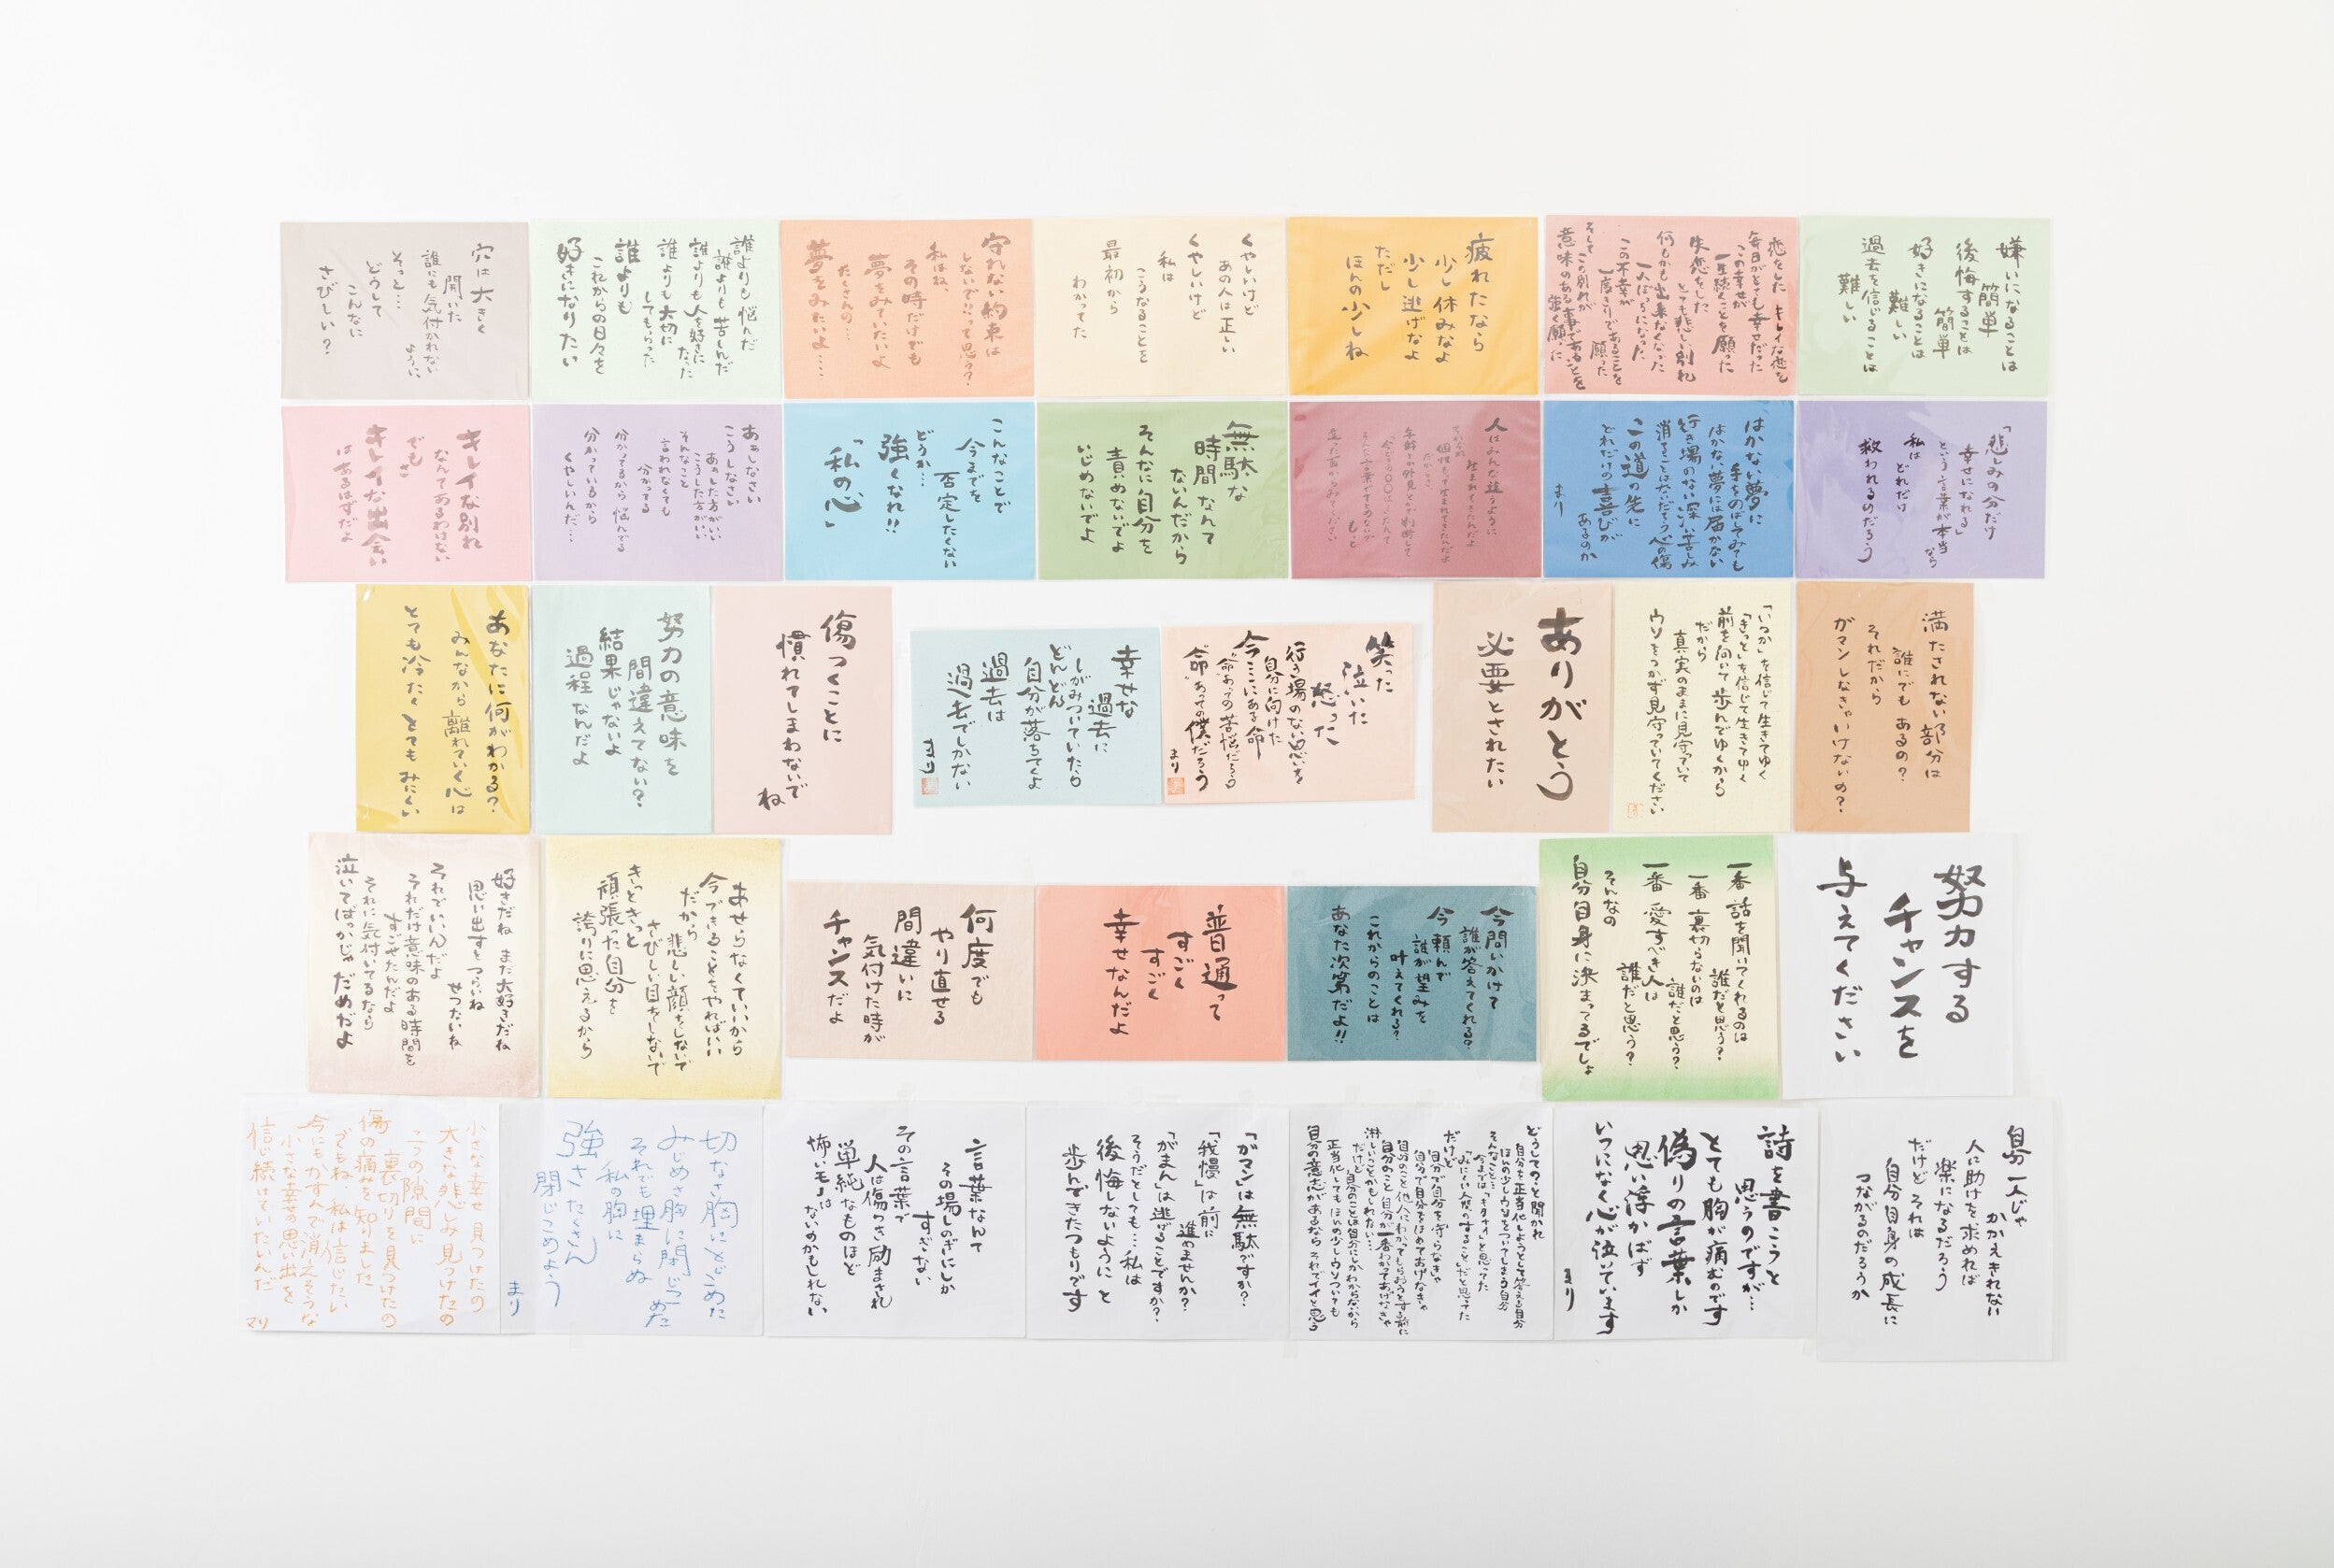 嫌いになることは
簡単
後悔することは
簡単
好きになることは
難しい
過去を信じることは
難しい
恋をした キレイな恋を
毎日がとても幸せだった
この幸せが
一生続くことを願った
失恋をした
とても悲しい別れ
何もかも出来なくなった
一人ぼっちになった
この不幸が
一度きりであることを
願った
そしてこの別れが
意味のある事であることを
強く願った
疲れたなら
少し休みなよ
少し逃げなよ
ただし
ほんの少しね
くやしいけど
あの人は正しい
くやしいけど
私は
こうなることを
最初から
わかってた
守れない約束は
しないでって思う?
私はね、
その時だけでも
夢をみていたいよ
たくさんの…
夢をみたいよ……
誰よりも悩んだ
誰よりも苦しんだ
誰よりも人を好きに
なった
誰よりも大切に
してもらった
誰よりも
これからの日々を
好きになりたい
穴は大きく
開いた
誰にも気付かれない
ように、
そっと…
どうして
こんなに
さびしい?
「悲しみの分だけ
幸せになれる」
という言葉が本当
なら
私は
どれだけ
救われるのだろう
はかない夢に
手をのばしてみても
はかない夢には届かない
行き場のない深い苦しみ
消えてことはないだろう心の傷
この道の先に
どれだけの喜びが
あるのか
まり
人はみんな違うように
生まれてきたんだよ
それぞれ
個性をもって生まれてきたんだよ
だから…
年齢とか外見とかで判断して
無駄な
時間なんて
ないんだから
そんなに自分を
責めないでよ
いじめないでよ
こんなことで
今までを
否定したくない
どうか…
強くなれ!!
「私の心」
あぁしなさい
こうしなさい
あぁした方がいい
こうした方がいい
そんなこと
言われなくても
分かってる
分かってるから悩んでる
分かっているから
くやしいんだ…
キレイな別れ
なんてあるわけない
でもさ
キレイな出会い
はあるはずだよ
満たされない部分は
誰にでもあるの?
それだから
ガマンしなきゃいけないの?
「いつか」を信じて生きてゆく
「きっと」を信じて生きてゆく
前を向いて歩んでゆくから
だから
真実のままに見守っていて
ウソをつかず見守っていてください
ありがとう
必要とされたい
笑った
泣いた
怒った
行き場のない思いを
自分に向けた
今ここにある命
命あっての苦悩だろう
命あっての僕だろう
まり
幸せな
過去に
しがみついていたら
どんどん
自分が落ちてくよ
過去は
過去でしかない
まり
傷つくことに
慣れてしまわないで
ね
努力の意味を
間違えてない?
結果じゃないよ
過程なんだよ
あなたに何がわかる?
みんなから離れていく心は
とても冷たくとてもみにくい
努力する
チャンスを
与えてください
一番話を聞いてくれるのは
誰だと思う?
一番裏切らないのは
誰だと思う?
一番愛すべき人は
誰だと思う?
そんなの
自分自身に決まってるでしょ
今問いかけて
誰が答えてくれる?
今頼んで
誰が望みを
叶えてくれる?
これからのことは
あなた次第だよ!!
普通って
すごく
すごく
幸せなんだよ
何度でも
やり直せる
間違いに
気付けた時が
チャンスだよ
あせらなくていいから
今できることをやればいい
だから
悲しい顔をしないで
さびしい目をしないで
きっときっと
頑張った自分を
誇りに思えるから
好きだね まだ大好きだね
思い出すとつらいね
せつないね
それでいいんだよ
それだけ意味のある時間を
すごせたんだよ
それに気付いてるなら
泣いてばっかじゃだめだよ
自分一人じゃ
かかえきれない
人に助けを求めれば
楽になるだろう
だけどそれは
自分自身の成長に
つながるのだろうか
詩を書こうと
思うのですが…
とても胸が痛むのです
偽りの言葉しか
思い浮かばず
いつになく心が泣いています
まり
どうしてのこと聞かれ
自分を正当化しようとして答える自分
ほんの少しウソをついてしまう自分
そんなこと…
今までは「キタナイ」と思ってた
「みにくい人間のすること」だと思ってた
だけど
自分で自分を守らなきゃ
自分で自分をほめてあげなきゃ
自分のこと他人にわかってもらおうとする前に
自分のこと自分が一番わかってあげなきゃ
淋しいことかもしれない…
だけど
自分のことは自分にしかわからないから
正当化してもほんの少しウソついても
自分の意志があるならそれでイイと思う
「ガマン」は無駄ですか?
「我慢」は前に
進めませんか?
「がまん」は逃げることですか?
そうだとしても…私は
後悔しないようにと
歩んできたつもりです
言葉なんて
その場しのぎにしか
すぎない
その言葉で
人は傷つき励まされ
単純なものほど
怖いモノは
ないのかもしれない
切なさ胸にとじこめた
みじめさ胸に閉じこ
めた
それでも埋まらぬ
私の胸に
強さたくさん
閉じこめよう
まり
小さな幸せ見つけたの
大きな悲しみ見つけたの
二つの隙間に
裏切りを見つけたの
傷の痛みを知りました
でもね、私は信じたい
今にもかすんで消えそうな
小さな幸せの思い出を
信じ続けていたいんだ
マリ